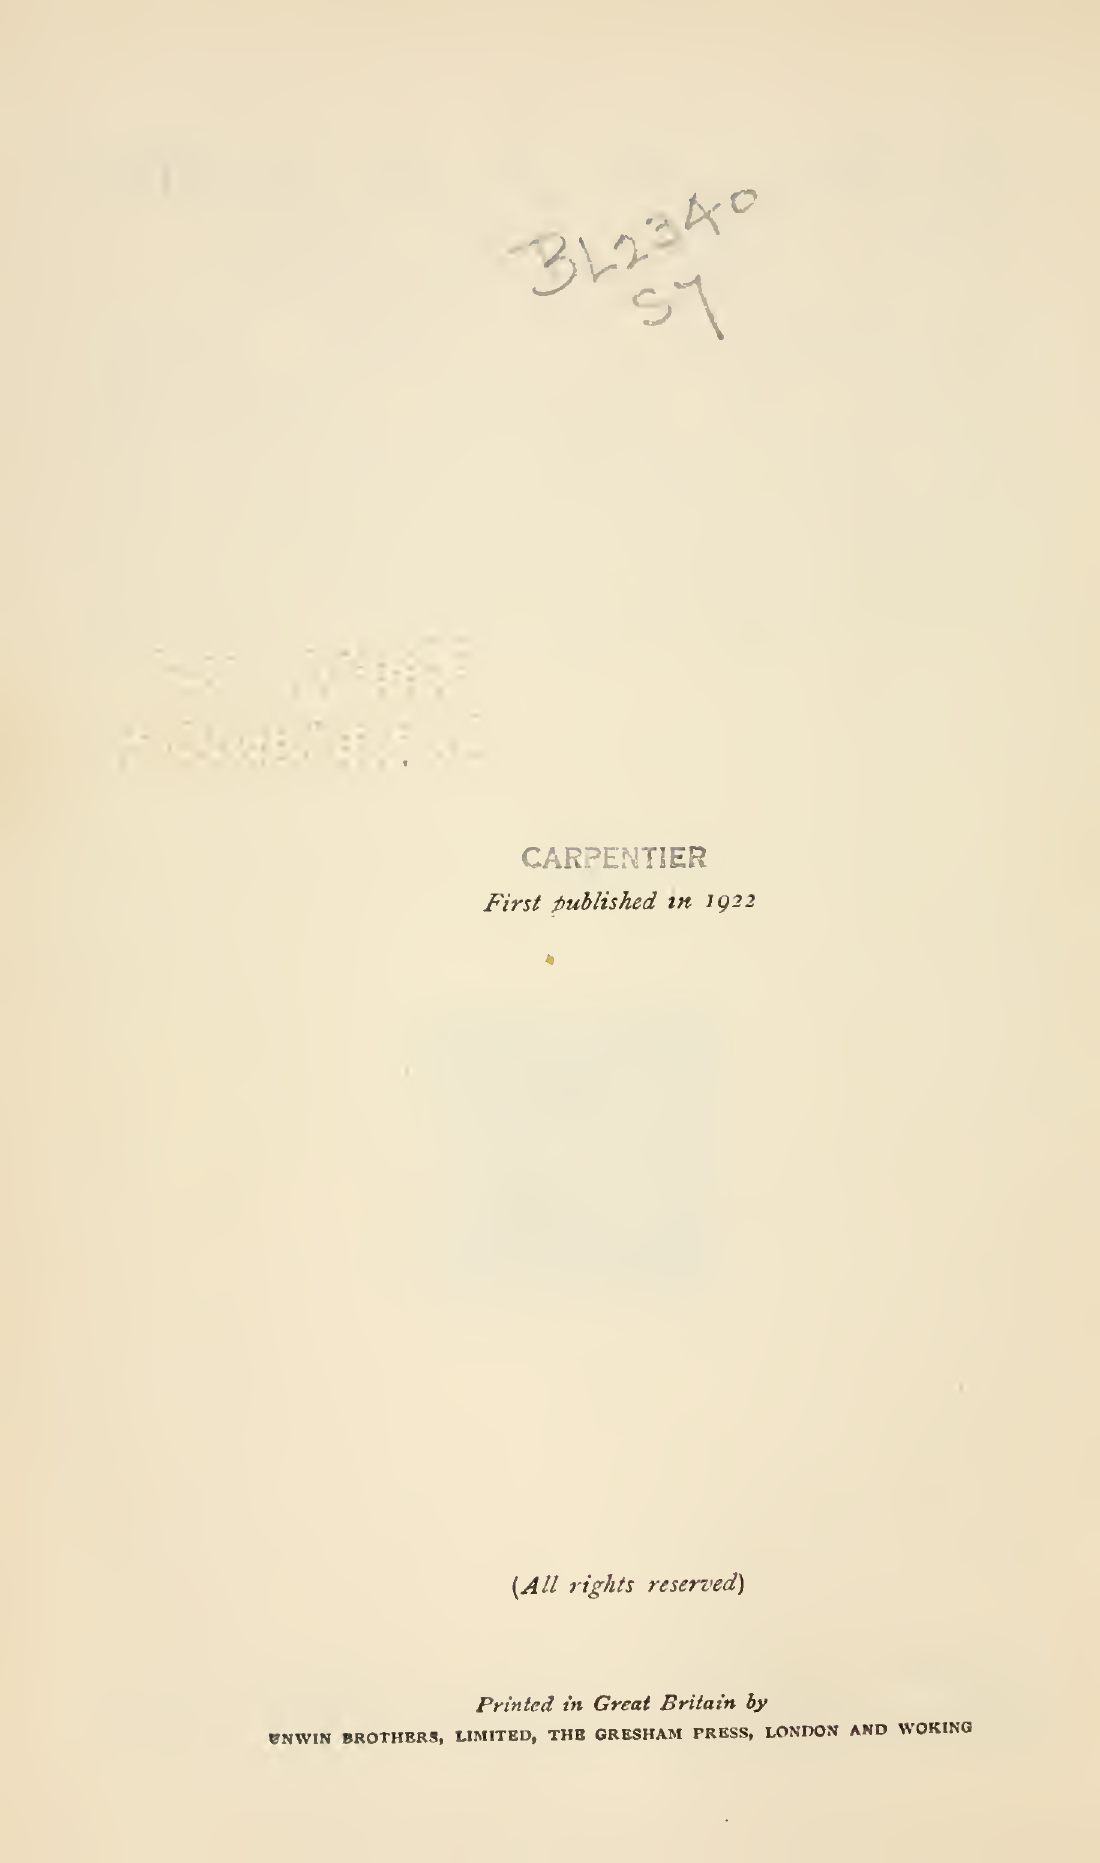 BL2340
S7
CARPENTIER
First published in 1922
(All rights reserved)
Printed in Great Britain by
UNWIN BROTHERS, LIMITED, THE GRESHAM PRESS, LONDON AND WOKING